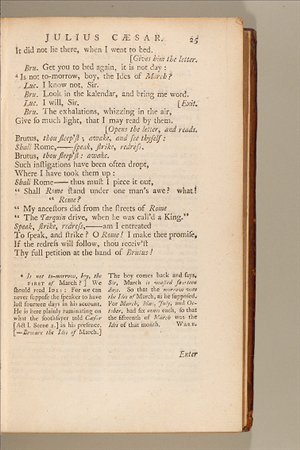 JULIUS CÆSAR. 25
It did not lie there, when I went to bed.
[Gives him the letter.
Bru. Get you to bed again, it is not day:
* Is not to-morrow, boy, the Ides of March?
Luc. I know not, Sir.
Bru. Look in the kalendar, and bring me word.
Luc. I will, Sir. [Exit.
Bru. The exhalations, whizzing in the air,
Give ſo much light, that I may read by them.
[Opens the letter, and reads.
Brutus, thou ſleep'ſt; awake, and ſee thyſelf:
Shall Rome——ſpeak, ſtrike, redreſs.
Brutus, thou ſleep'ſt: awake.
Such inſtigations have been often dropt,
Where I have took them up:
Shall Rome—— thus muſt I piece it out,
“ Shall Rome ſtand under one man's awe? what!
“ Rome?
“ My anceſtors did from the ſtreets of Rome
“ The Tarquin drive, when he was call'd a King.”
Speak, ſtrike, redreſs,——am I entreated
To ſpeak, and ſtrike? O Rome! I make thee promiſe,
If the redreſs will follow, thou receiv'ſt
Thy full petition at the hand of Brutus!
* Is not to-morrow, boy, the
FIRST of March?] We
ſhould read IDES: For we can
never ſuppoſe the ſpeaker to have
loſt fourteen days in his account.
He is here plainly ruminating on
what the ſoothſayer told Cæſar
[Act I. Scene 2.] in his preſence.
[—Beware the Ides of March.]
The boy comes back and ſays,
Sir, March is waſted fourteen
days. So that the morrow was
the Ides of March, as he ſuppoſed.
For March, May, July, and Oc-
tober, had ſix nones each, ſo that
the fifteenth of March was the
Ides of that month. WARB.
Enter